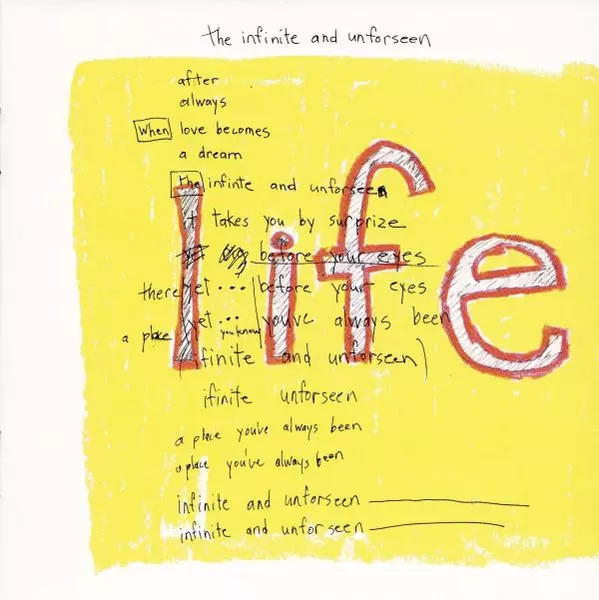 the infinite and unforseen
after
always
When love becomes
a dream
the infinte and unforseen
it takes you by surprize
before your eyes
there yet ... before your eyes
a place yet ... you know you've always been
infinite and unforseen)
ifinite unforseen
a place you've always been
a place you've always been
infinite and unforseen
infinite and unforseen
life